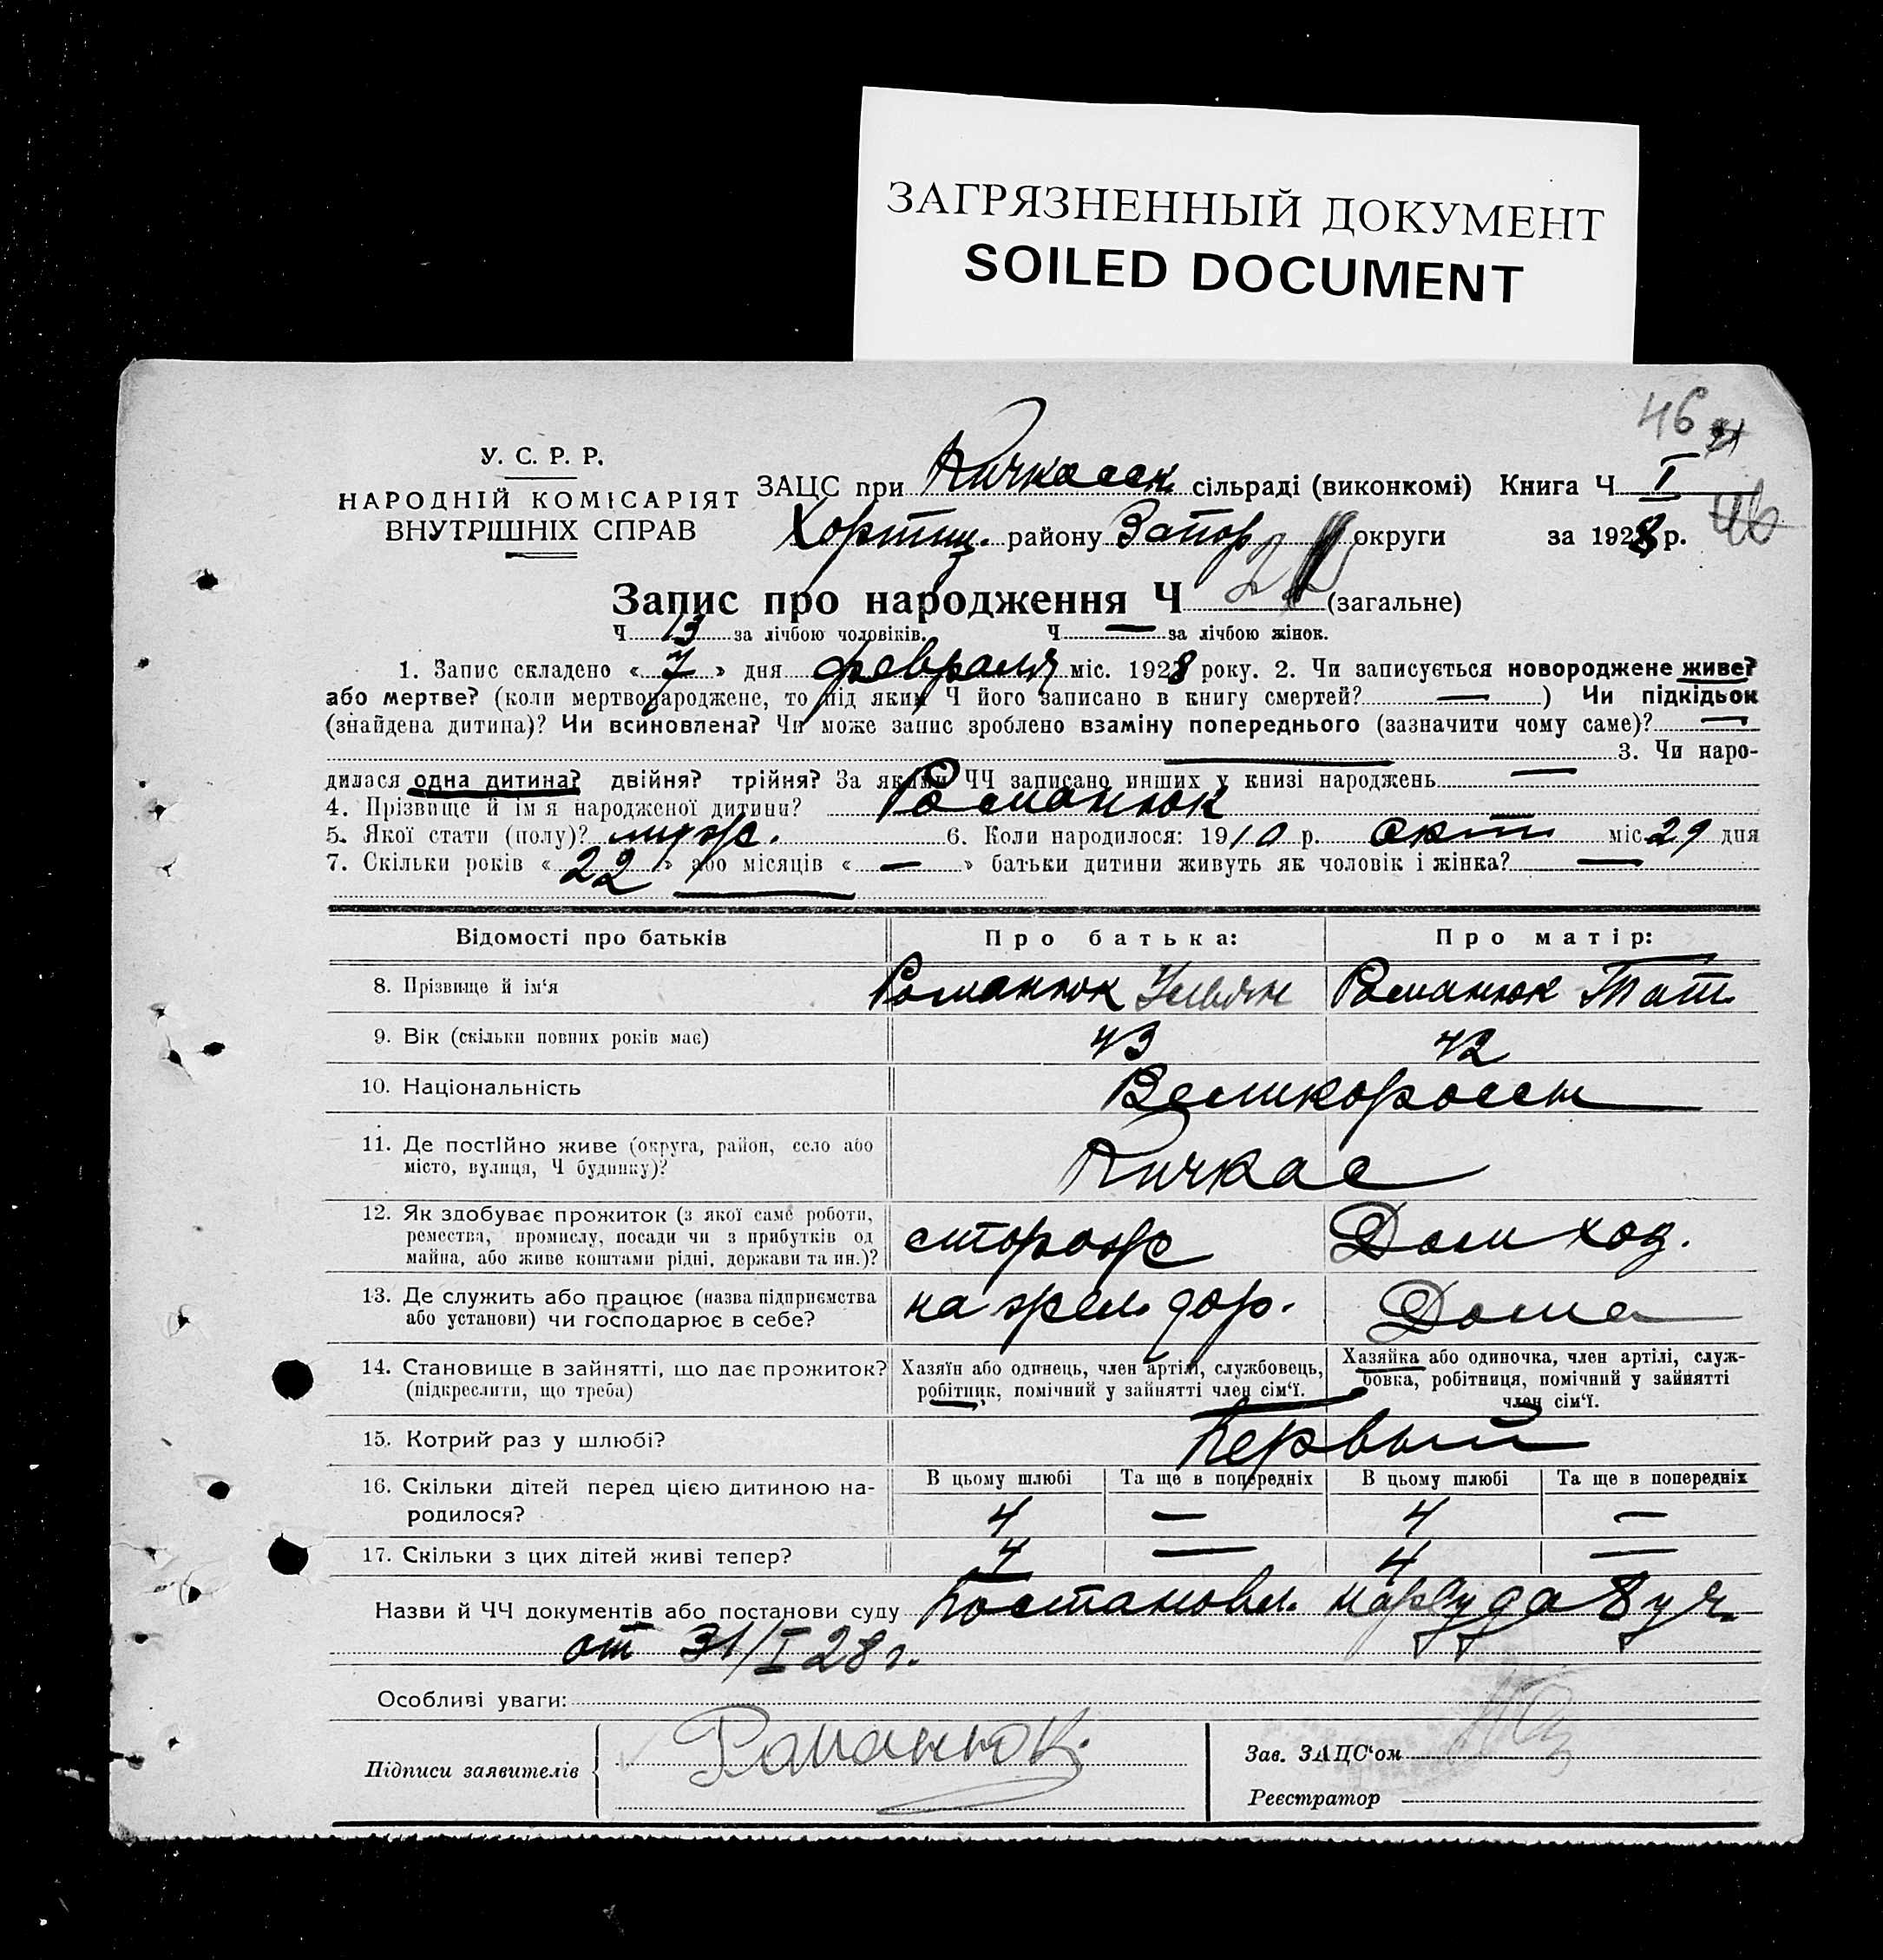 ЗАГРЯЗНЕННЫЙ ДОКУМЕНТ
SOILED DOCUMENT
46
У. С. Р. Р.
НАРОДНІЙ КОМІСАРІЯТ
ВНУТРІШНІХ СПРАВ
ЗАЦС при Кичкасск. сільраді (виконкомі) Книга Ч I
Хортиц. району Запор округи за 1928 р. 46
Запис про народження Ч (загальне)
Ч 13 за лічбою чоловіків. Ч — за лічбою жінок.
1. Запис складено « 7 » дня февраля міс. 1928 року. 2. Чи записується новороджене живе?
або мертве? (коли мертвонароджене, то під яким Ч його записано в книгу смертей? — ) Чи підкідьок
(знайдена дитина)? Чи всиновлена? Чи може запис зроблено взаміну попереднього (зазначити чому саме)? —
— 3. Чи наро-
дилася одна дитина? двійня? трійня? За якими ЧЧ записано инших у книзі народжень —
4. Прізвище й ім'я народженої дитини? Романюк
5. Якої стати (полу)? муж. 6. Коли народилося: 1910 р. окт міс 29 дня
7. Скільки років « 22 » або місяців « — » батьки дитини живуть як чоловік і жінка? —
Відомості про батьків Про батька: Про матір:
8. Прізвище й ім'я Романюк Ульян Романюк Тат.
9. Вік (скільки повних років має) 43 42
10. Національність Великороссы
11. Де постійно живе (округа, район, село або
місто, вулиця, Ч будинку)? Кичкас
12. Як здобуває прожиток (з якої саме роботи,
ремества, промислу, посади чи з прибутків од
майна, або живе коштами рідні, держави та ин.)? сторож Дом хоз.
13. Де служить або працює (назва підприємства
або установи) чи господарює в себе? на жел. дор. Дома
14. Становище в зайнятті, що дає прожиток?
(підкреслити, що треба)
Хазяїн або одинець, член артілі, службовець,
робітник, помічний у зайнятті член сім'ї.
Хазяйка або одиночка, член артілі, служ-
бовка, робітниця, помічний у зайнятті
член сім'ї.
15. Котрий раз у шлюбі? Первый
16. Скільки дітей перед цією дитиною на-
родилося?
В цьому шлюбі Та ще в попередніх В цьому шлюбі Та ще в попередніх
4 — 4 —
17. Скільки з цих дітей живі тепер? 4 — 4 —
Назви й ЧЧ документів або постанови суду Постановл. нарсуда 8 уч.
от 31/I 28 г.
Особливі уваги:
Підписи заявителів Романюк.
Зав. ЗАЦС'ом
Реєстратор